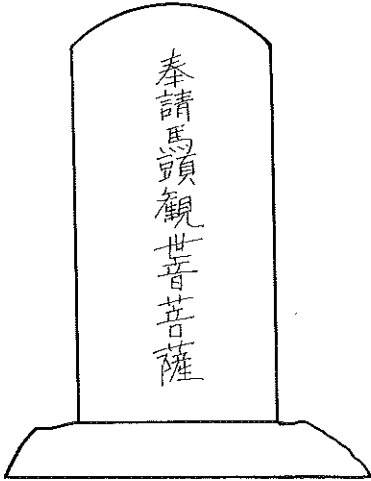 奉請馬頭観世音菩薩